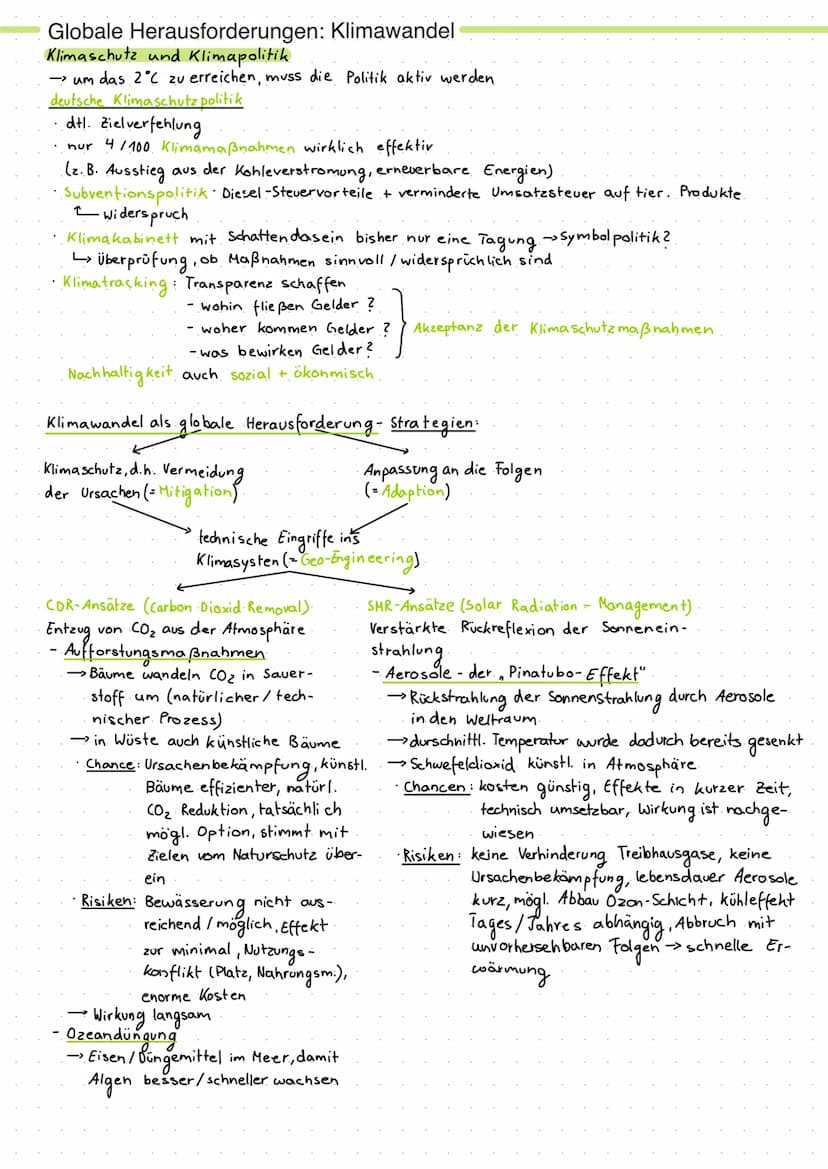 Globale Herausforderungen: Klimawandel
Klimaschutz und Klimapolitik
→ um das 2°C zu erreichen, muss die Politik aktiv werden
deutsche Klimaschutzpolitik
· dtl. Zielverfehlung
· nur 4/100 Klimamaßnahmen wirklich effektiv
(z.B. Ausstieg aus der Kohleverstromung, erneuerbare Energien)
· Subventionspolitik · Diesel-Steuervorteile + verminderte Umsatzsteuer auf tier. Produkte
Widerspruch
· Klimakabinett mit Schattendasein bisher nur eine Tagung → Symbolpolitik?
↳ Überprüfung, ob Maßnahmen sinnvoll / widersprüchlich sind
· Klimatracking: Transparenz schaffen
- wohin fließen Gelder?
- woher kommen Gelder? } Akzeptanz der Klimaschutzmaßnahmen
- was bewirken Gelder?
Nachhaltigkeit auch sozial + ökonmisch
Klimawandel als globale Herausforderung - Strategien:
Klimaschutz, d.h. Vermeidung
der Ursachen (= Mitigation)
Anpassung an die Folgen
(= Adaption)
technische Eingriffe ins
Klimasysten (= Geo-Engineering)
CDR-Ansätze (Carbon Dioxid Removal)
Entzug von CO₂ aus der Atmosphäre
- Aufforstungsmaßnahmen
→ Bäume wandeln CO₂ in Sauer-
stoff um (natürlicher / tech-
nischer Prozess)
→ in Wüste auch künstliche Bäume
· Chance: Ursachenbekämpfung, künstl.
Bäume effizienter, natürl.
CO₂ Reduktion, tatsächlich
mögl. Option, stimmt mit
Zielen vom Naturschutz über-
ein
· Risiken: Bewässerung nicht aus-
reichend / möglich, Effekt
zur minimal, Nutzungs-
konflikt (Platz, Nahrungsm.),
enorme Kosten
→ Wirkung langsam
- Ozeandüngung
→ Eisen / Düngemittel im Meer, damit
Algen besser / schneller wachsen
SMR-Ansätze (Solar Radiation - Management)
Verstärkte Rückreflexion der Sonnenein-
strahlung
- Aerosole - der „Pinatubo-Effekt"
→ Rückstrahlung der Sonnenstrahlung durch Aerosole
in den Weltraum
→ durschnittl. Temperatur wurde dadurch bereits gesenkt
→ Schwefeldioxid künstl. in Atmosphäre
· Chancen: kosten günstig, Effekte in kurzer Zeit,
technisch umsetzbar, Wirkung ist nachge-
wiesen
· Risiken: keine Verhinderung Treibhausgase, keine
Ursachenbekämpfung, lebensdauer Aerosole
kurz, mögl. Abbau Ozon-Schicht, kühleffekt
Tages/Jahres abhängig, Abbruch mit
unvorhersehbaren Folgen → schnelle Er-
wärmung